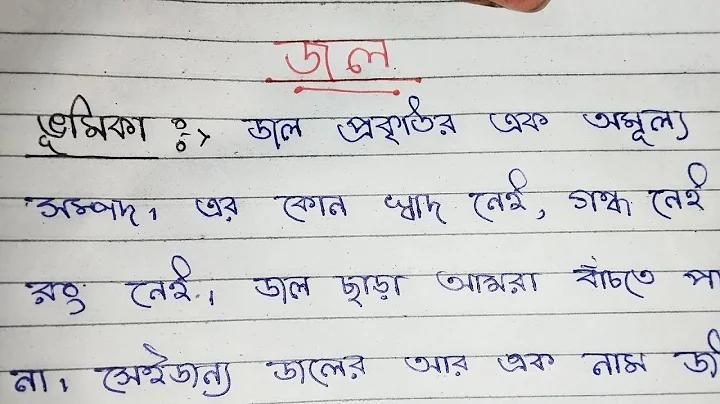 জল
ভূমিকা :> জল প্রকৃতির এক অমূল্য
সম্পদ। এর কোন স্বাদ নেই, গন্ধ নেই
রং নেই। জল ছাড়া আমরা বাঁচতে পা
না। সেইজন্য জলের আর এক নাম জী